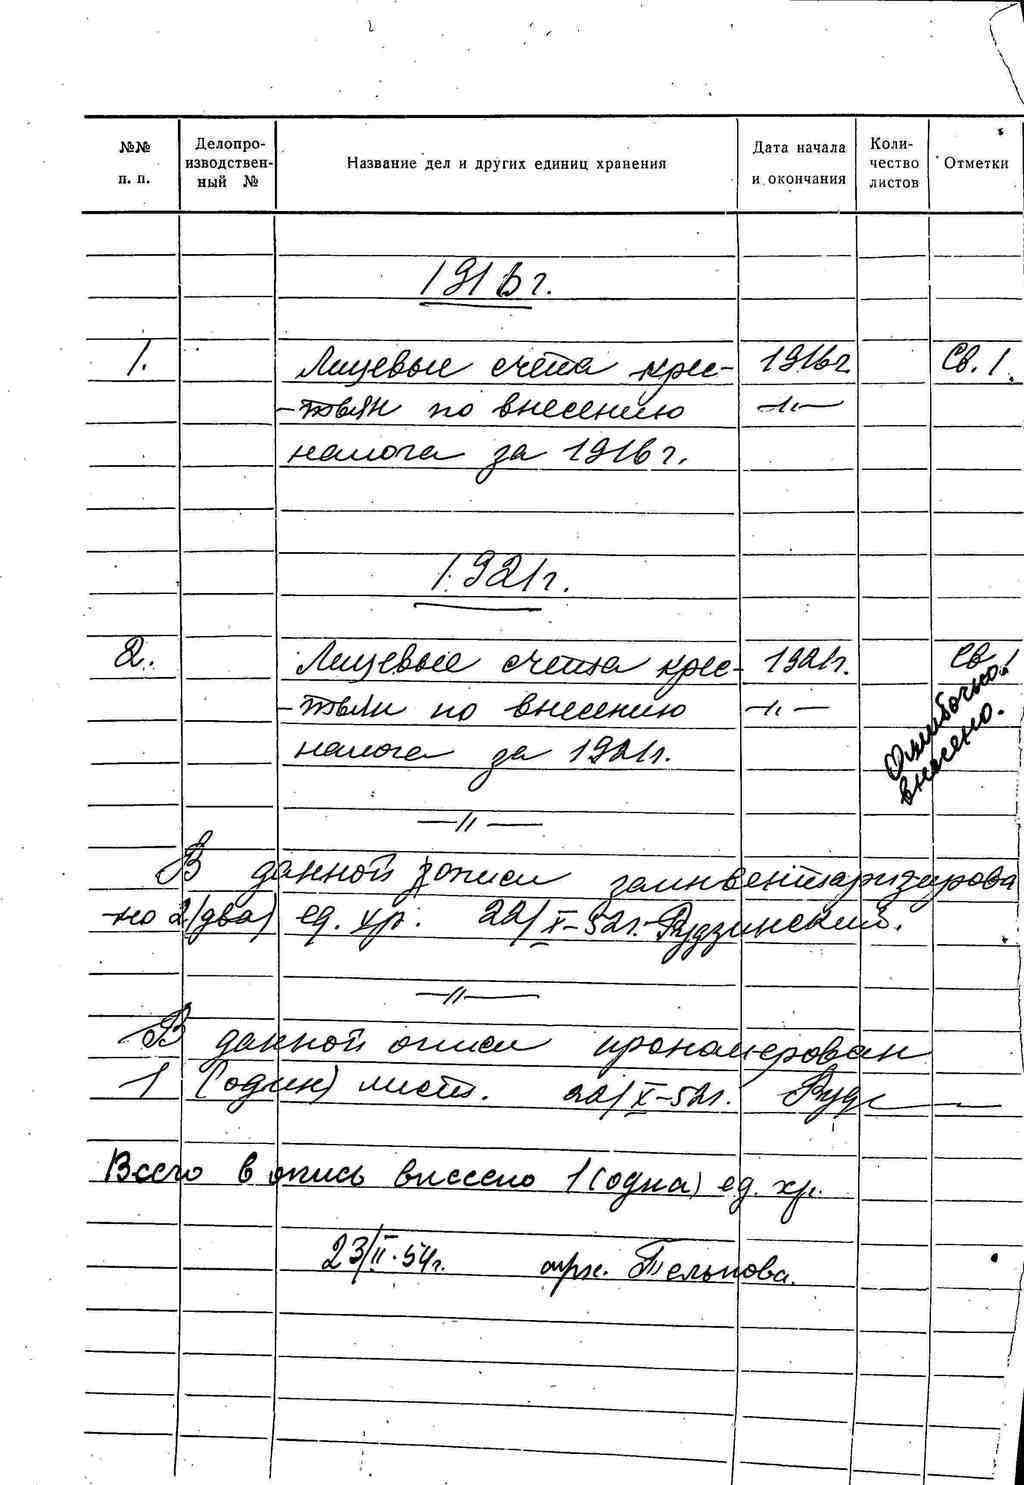 №№ п. п. Делопро-изводствен-ный № Название дел и других единиц хранения Дата начала и окончания Коли-чество листов Отметки
1916 г.
1. Лицевые счета крес- 1916г. Св. 1.
-тьян по внесению -"-
налога за 1916 г.
1921 г.
2. Лицевые счета крес- 1921г. Св 1
-тьян по внесению -"-
налога за 1921г.
Ошибочно
внесено.
-"-
В данной описи заинвентаризирова
-но 2 (два) ед. хр. 22/X-52г. Рудзинский.
-"-
В данной описи пронумерован
1 (один) лист. 22/X-52г. Рудз
Всего в опись внесено 1 (одна) ед. хр.
23/II.54г. арх.